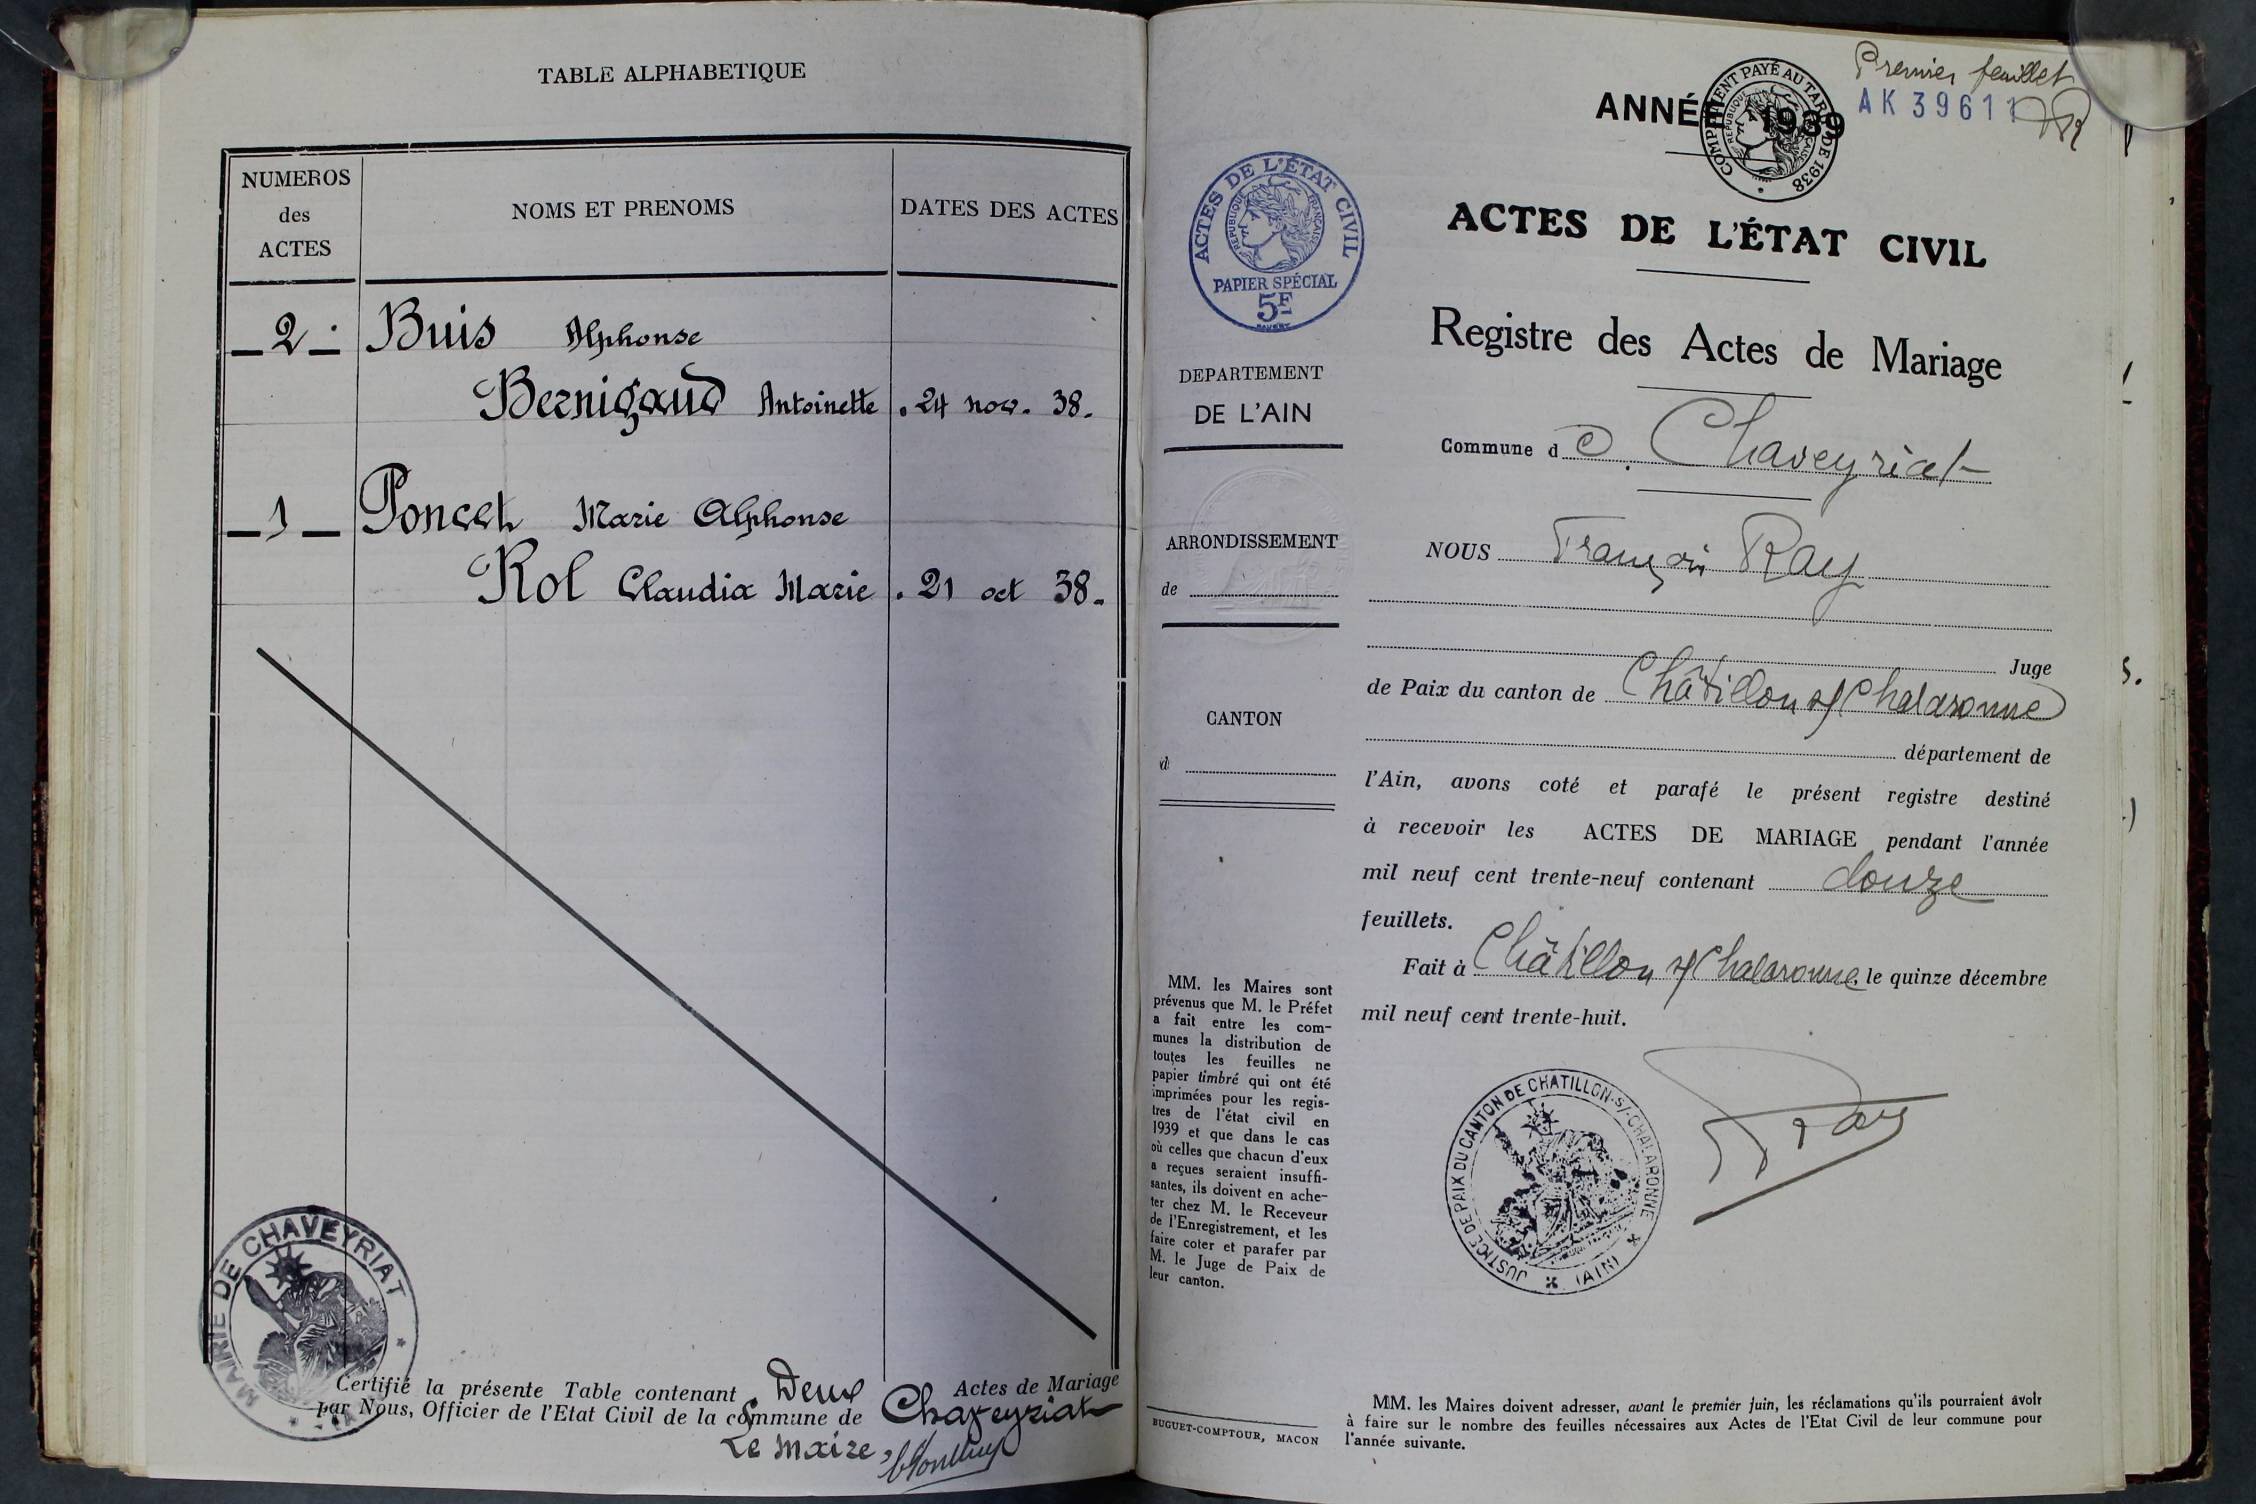 TABLE ALPHABETIQUE
NUMEROS
des
ACTES
NOMS ET PRENOMS
DATES DES ACTES
_2_. Buis Alphonse
Bernigaud Antoinette . 24 nov. 38.
_1_ Poncet Marie Alphonse
Rol Claudia Marie . 21 oct 38.
MAIRIE DE CHAVEYRIAT
Certifié la présente Table contenant Deux Actes de Mariage
par Nous, Officier de l'Etat Civil de la commune de Chaveyriat
Le Maire,
Premier feuillet
AK 39611
ANNÉE 1939
COMPLÉMENT PAYÉ AU TARIF DE 1938
RÉPUBLIQUE FRANÇAISE
ACTES DE L'ÉTAT CIVIL
RÉPUBLIQUE FRANÇAISE
PAPIER SPÉCIAL
5F
ACTES DE L'ÉTAT CIVIL
Registre des Actes de Mariage
DEPARTEMENT
DE L'AIN
Commune de Chaveyriat
ARRONDISSEMENT
de
CANTON
d
NOUS François Ray
Juge
de Paix du canton de Châtillon s/Chalaronne
département de
l'Ain, avons coté et parafé le présent registre destiné
à recevoir les ACTES DE MARIAGE pendant l'année
mil neuf cent trente-neuf contenant douze
feuillets.
Fait à Châtillon s/Chalaronne, le quinze décembre
mil neuf cent trente-huit.
Ray
JUSTICE DE PAIX DU CANTON DE CHATILLON-S/-CHALARONNE
(AIN)
MM. les Maires sont
prévenus que M. le Préfet
a fait entre les com-
munes la distribution de
toutes les feuilles ne
papier timbré qui ont été
imprimées pour les regis-
tres de l'état civil en
1939 et que dans le cas
où celles que chacun d'eux
a reçues seraient insuffi-
santes, ils doivent en ache-
ter chez M. le Receveur
de l'Enregistrement, et les
faire coter et parafer par
M. le Juge de Paix de
leur canton.
BUGUET-COMPTOUR, MACON
MM. les Maires doivent adresser, avant le premier juin, les réclamations qu'ils pourraient avoir
à faire sur le nombre des feuilles nécessaires aux Actes de l'Etat Civil de leur commune pour
l'année suivante.